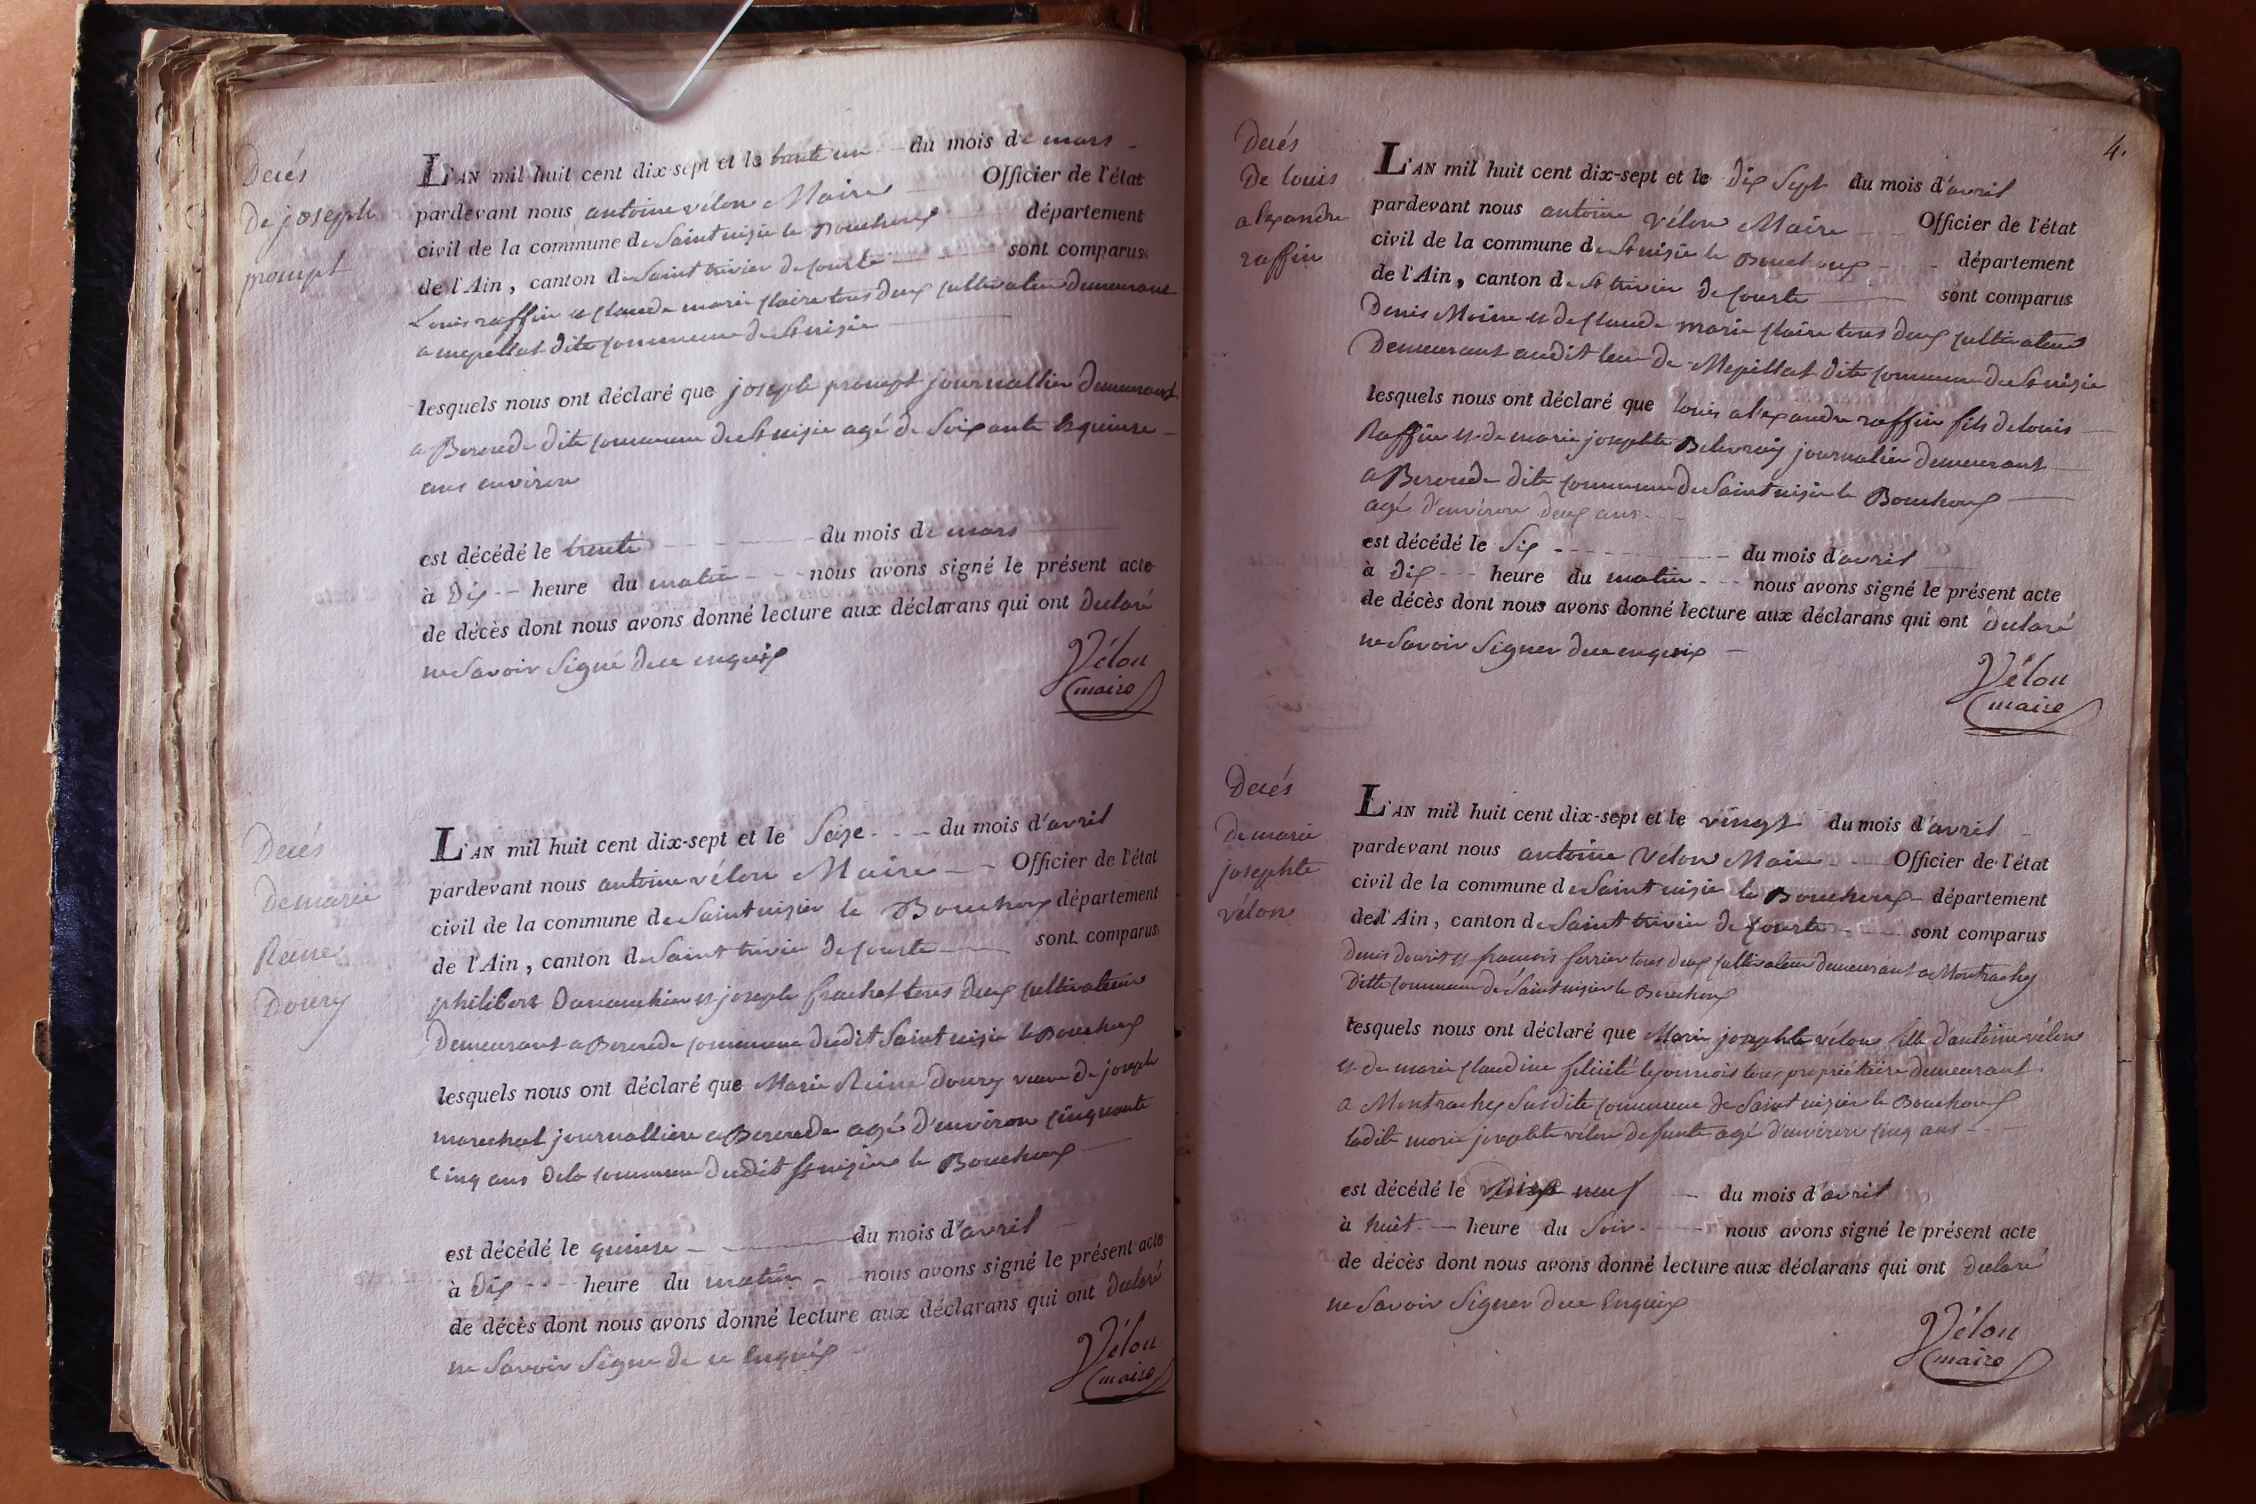 Decés
De joseph
prompt
L'AN mil huit cent dix-sept et le trente un du mois de mars
pardevant nous antoine vélon Maire Officier de l'état
civil de la commune de Saint nizie le Bouchoux département
de l'Ain, canton de Saint trivier de Courte sont comparus
Louis raffin et Claude marie Claire tous deux cultivateur Demeurant
a mepillat dite Commune de St nizie
lesquels nous ont déclaré que joseph prompt journallier Demeurant
a Bererede dite Commune de St nizie agé de Soixante et quinse
ans environ
est décédé le trente du mois de mars
à Dix heure du matin nous avons signé le présent acte
de décès dont nous avons donné lecture aux déclarans qui ont Declaré
ne Savoir Signé de ce enquix
Vélon
maire
Decés
De marie
Reine
Doury
L'AN mil huit cent dix-sept et le Seize du mois d'avril
pardevant nous antoine vélon Maire Officier de l'état
civil de la commune de Saint nizier le Bouchoux département
de l'Ain, canton de Saint trivie de Courte sont comparus
philibert et joseph frachet tous deux cultivateur
Demeurant a Bererede Commune dudit Saint nizie le Bouchoux
lesquels nous ont déclaré que Marie Reine Doury veuve De joseph
marechal journalliere a Bererede agé d'environ Cinquante
Cinq ans de la Commune dudit St nizier le Bouchoux
est décédé le quinse du mois d'avril
à Dix heure du matin nous avons signé le présent acte
de décès dont nous avons donné lecture aux déclarans qui ont Declaré
ne Savoir Signe de ce Enquix
Vélon
maire
4.
Decés
De louis
alexandre
raffin
L'AN mil huit cent dix-sept et le Dix Sept du mois d'avril
pardevant nous antoine vélon Maire Officier de l'état
civil de la commune de St nizie le Bouchoux département
de l'Ain, canton de St trivier de Courte sont comparus
Denis Moine et de Claude marie Claire tous deux cultivateur
Demeurant audit lieu de Mepillat dite Commune de St nizie
lesquels nous ont déclaré que louis alexandre raffin fils de louis
Raffin et de marie josephte journalier demeurant
a Beroude dite Commune de Saint nizie le Bouchoux
agé d'environ deux ans
est décédé le Six du mois d'avril
à dix heure du matin nous avons signé le présent acte
de décès dont nous avons donné lecture aux déclarans qui ont Declaré
ne Savoir Signer de ce enquix
Vélon
maire
Decés
De marie
josephte
vélon
L'AN mil huit cent dix-sept et le vingt du mois d'avril
pardevant nous antoine Vélon Maire Officier de l'état
civil de la commune de Saint nizie le Bouchoux département
de l'Ain, canton de Saint trivie de Courte sont comparus
Denis et francois ferrier tous deux cultivateur demeurant a Montrachy
Ditte Commune de Saint nizier le Bouchoux
lesquels nous ont déclaré que Marie josephte vélon fille d'antoine vélon
et de marie Claudine felicité lyonnois tous propriétaire demeurant
a Montrachy Susdite Commune de Saint nizier le Bouchoux
ladite marie josephte vélon defunte agé d'environ Cinq ans
est décédé le Dix neuf du mois d'avril
à huit heure du Soir nous avons signé le présent acte
de décès dont nous avons donné lecture aux déclarans qui ont Declaré
ne Savoir Signer de ce Enquix
Vélon
maire